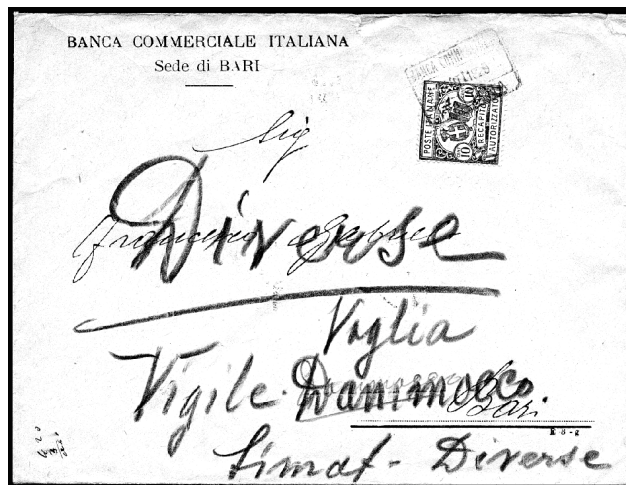 BANCA COMMERCIALE ITALIANA
Sede di BARI
BANCA COMM
POSTE ITALIANE
RECAPITO
AUTORIZZATO
10
10
Sig
Diverse
Francesco
Voglia
Vigile. Dammacco
Bari.
E 8 - g
Simat - Diverse